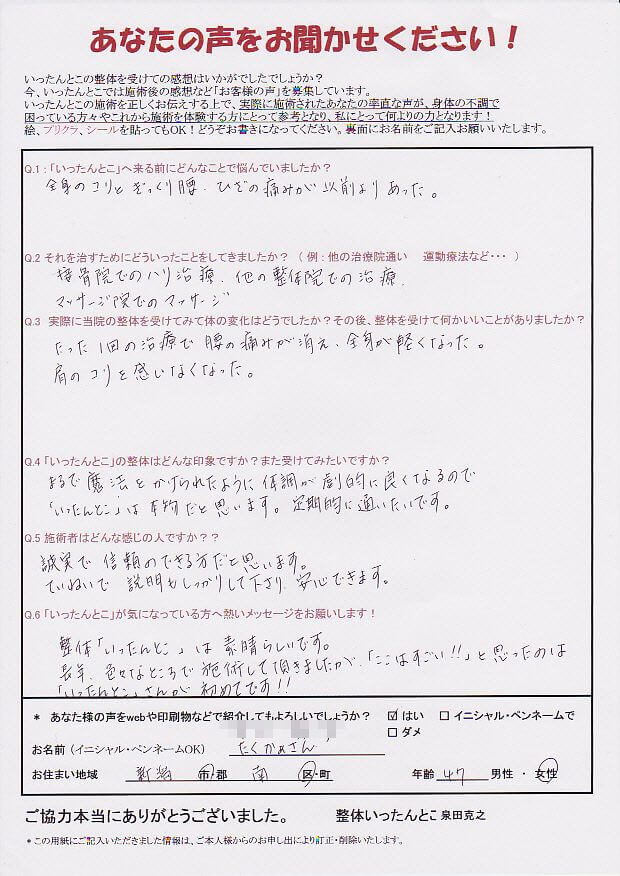 あなたの声をお聞かせください！
いったんとこの整体を受けての感想はいかがでしたでしょうか？
今、いったんとこでは施術後の感想など「お客様の声」を募集しています。
いったんとこの施術を正しくお伝えする上で、実際に施術されたあなたの率直な声が、身体の不調で
困っている方々やこれから施術を体験する方にとって参考となり、私にとって何よりの力となります！
絵、プリクラ、シールを貼ってもOK！どうぞお書きになってください。裏面にお名前をご記入お願いいたします。
Q.1：「いったんとこ」へ来る前にどんなことで悩んでいましたか？
全身のコリとぎっくり腰、ひざの痛みが以前よりあった。
Q.2 それを治すためにどういったことをしてきましたか？（例：他の治療院通い　運動療法など・・・）
接骨院でのハリ治療、他の整体院での治療、
マッサージ院でのマッサージ
Q.3 実際に当院の整体を受けてみて体の変化はどうでしたか？その後、整体を受けて何かいいことがありましたか？
たった1回の治療で腰の痛みが消え、全身が軽くなった。
肩のコリを感じなくなった。
Q.4「いったんとこ」の整体はどんな印象ですか？また受けてみたいですか？
まるで魔法をかけられたように体調が劇的に良くなるので
「いったんとこ」は本物だと思います。定期的に通いたいです。
Q.5 施術者はどんな感じの人ですか？？
誠実で信頼のできる方だと思います。
ていねいで説明もしっかりして下さり、安心できます。
Q.6「いったんとこ」が気になっている方へ熱いメッセージをお願いします！
整体「いったんとこ」は素晴らしいです。
長年、色々なところで施術して頂きましたが、「ここはすごい!!」と思ったのは
「いったんとこ」さんが初めてです!!
* あなた様の声をwebや印刷物などで紹介してもよろしいでしょうか？ ☑ はい □ イニシャル・ペンネームで
□ ダメ
お名前（イニシャル・ペンネームOK） たくかあさん
お住まい地域 新潟 市・郡 南 区・町 年齢 47 男性 ・ 女性
ご協力本当にありがとうございました。 整体いったんとこ 泉田克之
*この用紙にご記入いただきました情報は、ご本人様からのお申し出により訂正・削除いたします。